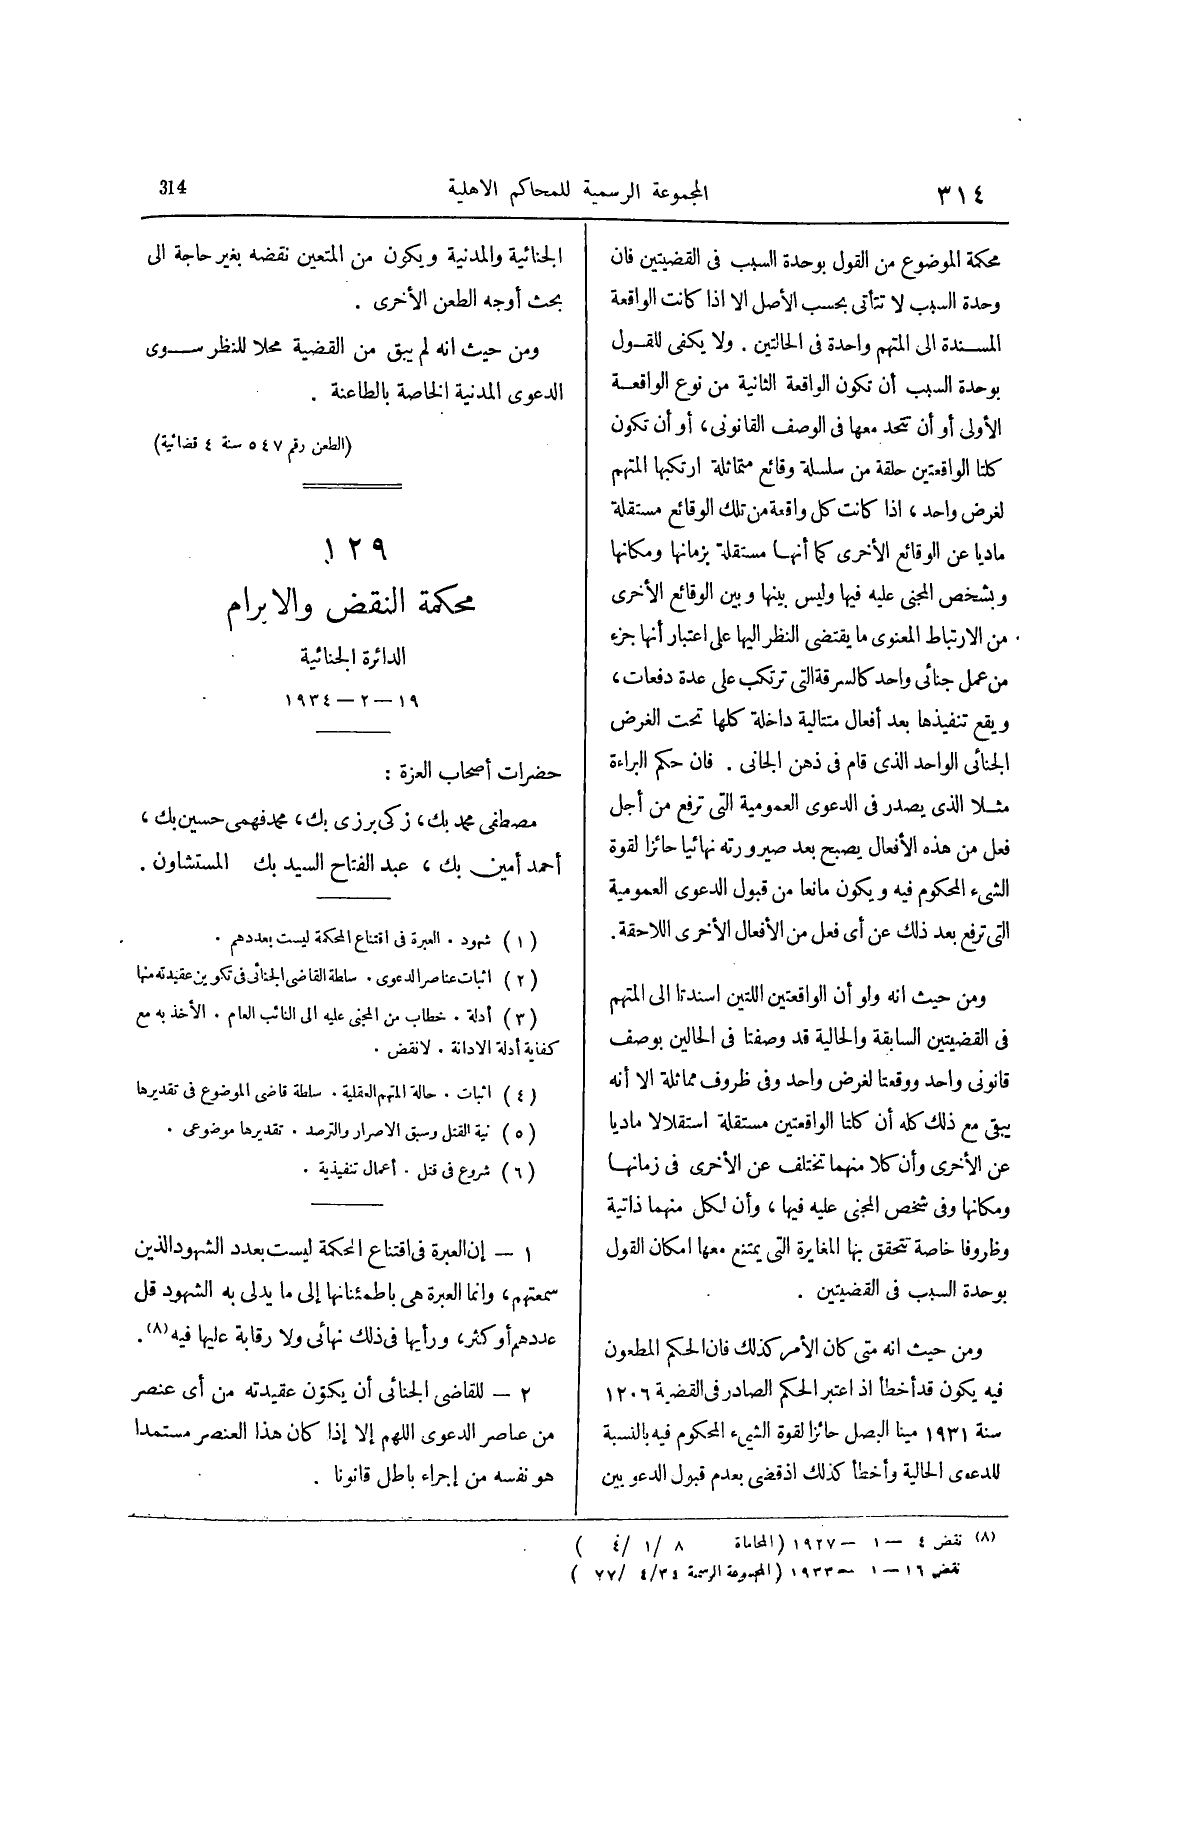 ٣١٤
المجموعة الرسمية للمحاكم الاهلية
314
محكمة الموضوع من القول بوحدة السبب فى القضيتين فان
وحدة السبب لا تتأتى بحسب الأصل الا اذا كانت الواقعة
المسندة الى المتهم واحدة فى الحالتين . ولا يكفى للقول
بوحدة السبب أن تكون الواقعة الثانية من نوع الواقعة
الأولى أو أن تتحد معها فى الوصف القانونى، أو أن تكون
كلتا الواقعتين حلقة من سلسلة وقائع متماثلة ارتكبها المتهم
لغرض واحد ، اذا كانت كل واقعة من تلك الوقائع مستقلة
ماديا عن الوقائع الأخرى كما أنها مستقلة بزمانها ومكانها
وبشخص المجنى عليه فيها وليس بينها وبين الوقائع الأخرى
من الارتباط المعنوى ما يقتضى النظر اليها على اعتبار أنها جزء
من عمل جنائى واحد كالسرقة التى ترتكب على عدة دفعات ،
ويقع تنفيذها بعد أفعال متتالية داخلة كلها تحت الغرض
الجنائى الواحد الذى قام فى ذهن الجانى . فان حكم البراءة
مثلا الذى يصدر فى الدعوى العمومية التى ترفع من أجل
فعل من هذه الأفعال يصبح بعد صيرورته نهائيا حائزا لقوة
الشىء المحكوم فيه ويكون مانعا من قبول الدعوى العمومية
التى ترفع بعد ذلك عن أى فعل من الأفعال الأخرى اللاحقة.
ومن حيث انه ولو أن الواقعتين اللتين اسندتا الى المتهم
فى القضيتين السابقة والحالية قد وصفتا فى الحالين بوصف
قانونى واحد ووقعتا لغرض واحد وفى ظروف مماثلة الا أنه
يبقى مع ذلك كله أن كلتا الواقعتين مستقلة استقلالا ماديا
عن الأخرى وأن كلا منهما تختلف عن الأخرى فى زمانها
ومكانها وفى شخص المجنى عليه فيها ، وأن لكل منهما ذاتية
وظروفا خاصة تتحقق بها المغايرة التى يمتنع معها امكان القول
بوحدة السبب فى القضيتين .
ومن حيث انه متى كان الأمر كذلك فان الحكم المطعون
فيه يكون قد أخطأ اذ اعتبر الحكم الصادر فى القضية ١٢٠٦
سنة ١٩٣١ مينا البصل حائزا لقوة الشىء المحكوم فيه بالنسبة
للدعوى الحالية وأخطأ كذلك اذ قضى بعدم قبول الدعويين
الجنائية والمدنية ويكون من المتعين نقضه بغير حاجة الى
بحث أوجه الطعن الأخرى .
ومن حيث انه لم يبق من القضية محلا للنظر سوى
الدعوى المدنية الخاصة بالطاعنة .
(الطعن رقم ٥٤٧ سنة ٤ قضائية)
١٢٩
محكمة النقض والابرام
الدائرة الجنائية
١٩ – ٢ – ١٩٣٤
حضرات أصحاب العزة :
مصطفى محمد بك، زكى برزى بك، محمد فهمى حسين بك ،
أحمد أمين بك ، عبد الفتاح السيد بك المستشاون .
(١) شهود . العبرة فى اقتناع المحكمة ليست بعددهم .
(٢) اثبات عناصر الدعوى . سلطة القاضى الجنائى فى تكوين عقيدته منها
(٣) أدلة . خطاب من المجنى عليه الى النائب العام . الأخذ به مع
كفاية أدلة الادانة . لا نقض .
(٤) اثبات . حالة المتهم العقلية . سلطة قاضى الموضوع فى تقديرها
(٥) نية القتل وسبق الاصرار والترصد . تقديرها موضوعى .
(٦) شروع فى قتل . أعمال تنفيذية .
١ – إن العبرة فى اقتناع المحكمة ليست بعدد الشهود الذين
سمعتهم، وانما العبرة هى باطمئنانها إلى ما يدلى به الشهود قل
عددهم أو كثر، ورأيها فى ذلك نهائى ولا رقابة عليها فيه (٨).
٢ – للقاضى الجنائى أن يكوّن عقيدته من أى عنصر
من عناصر الدعوى اللهم إلا إذا كان هذا العنصر مستمدا
هو نفسه من إجراء باطل قانونا .
(٨) نقض ٤ – ١ – ١٩٢٧ (المحاماة ٨ / ١ / ٤ )
نقض ١٦ – ١ – ١٩٣٣ (المجموعة الرسمية ٣٤ / ٤ / ٧٧ )